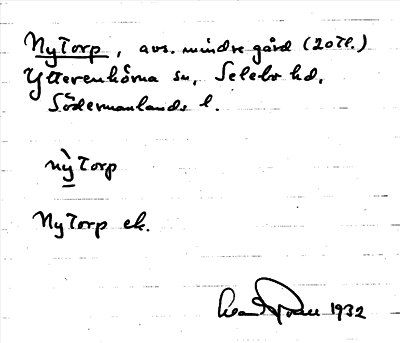 Nytorp, avs. mindre gård (20tl.)
Ytterenhörna sn, Selebo hd,
Södermanlands l.
nỳtorp
Nytorp ek.
1932